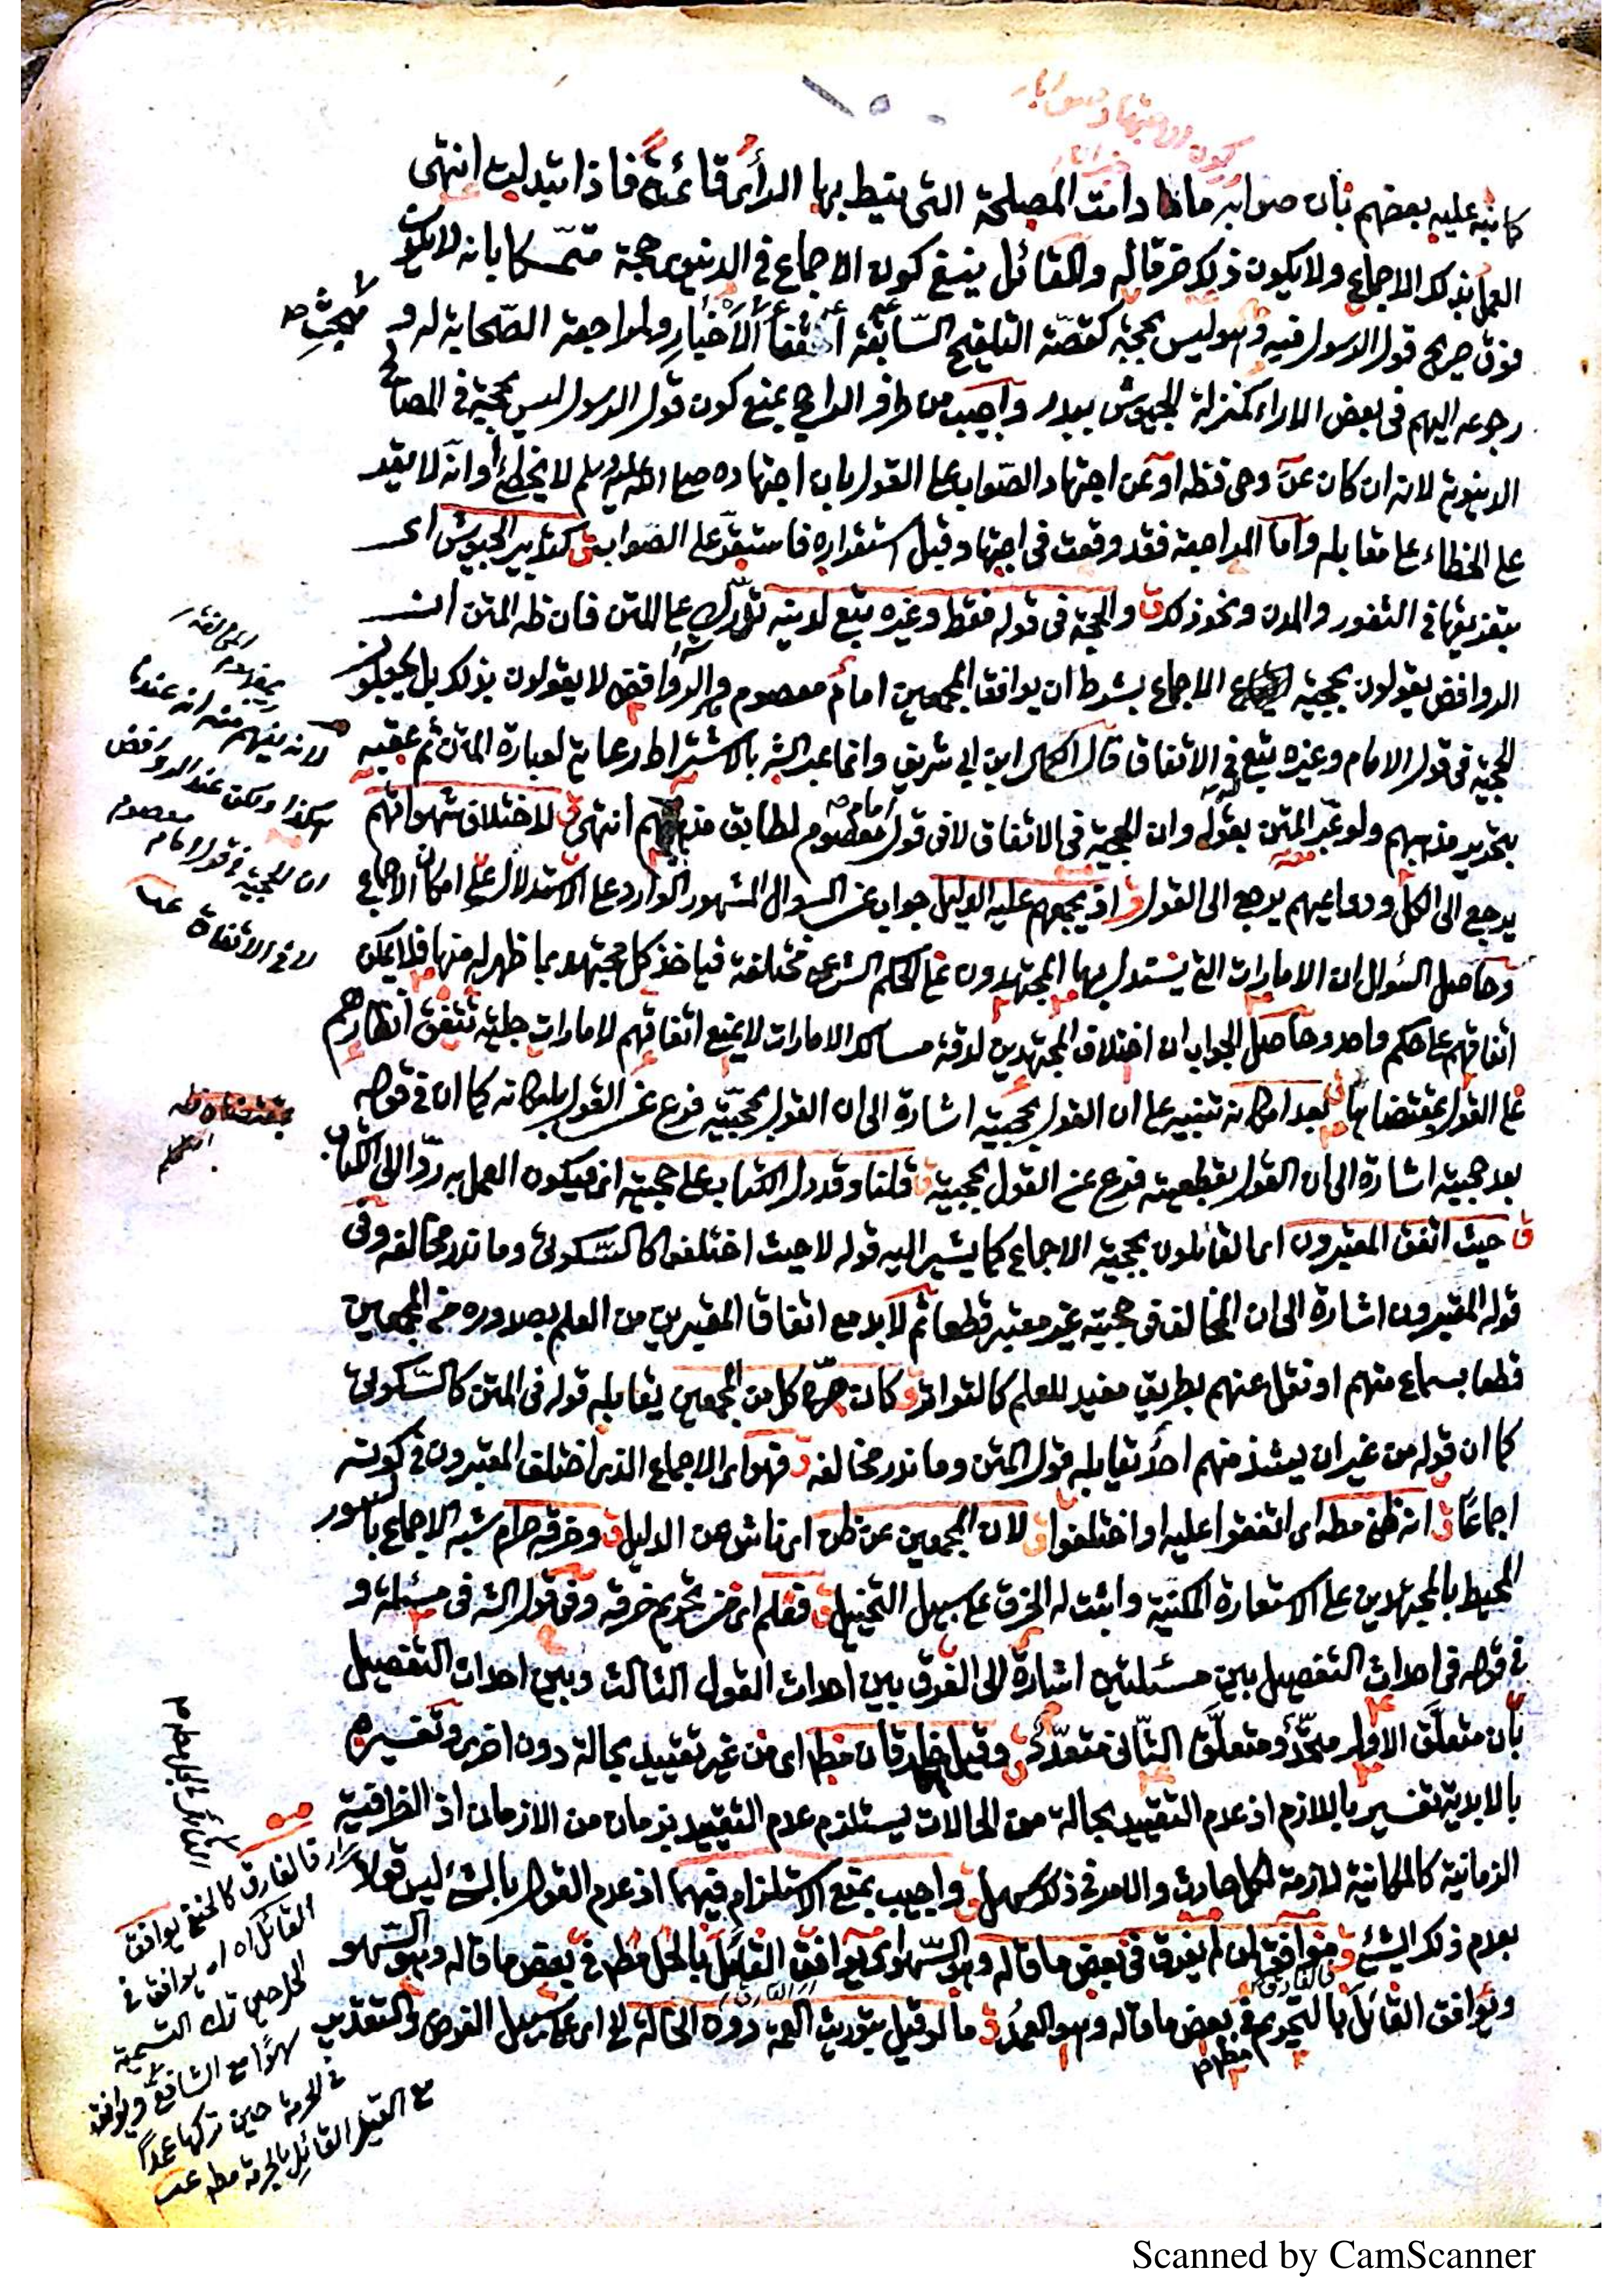 كما نبه عليه بعضهم بأن صوابه ما دامت المصلحة التي نيط بها الرأي قائمة فاذا تبدلت انتهى
العمل بذلك الاجماع ولا يكون ذلك خرقا له والقائل ينبغي كون الاجماع في الدنيوي حجة متمسكا بانه لا يكون
فوق صريح قول الرسول فيه وهو ليس بحجة كقصة التلقيح السابقة الاخبار ولمراجعة الصحابة له و
رجوعه اليهم في بعض الاراء كمنزلة الجيوش ببدر واجيب من طرف الراجح بمنع كون قول الرسول ليس بحجة في المصالح
الدنيوية لانه ان كان عن وحي فظ او عن اجتهاد الصواب على القول بان اجتهاده صلى الله عليه وسلم لا يخطئ او انه لا يقر
على الخطاء على مقابله واما المراجعة فقد وقعت في اجتهاد قبل استقراره فاستقر على الصواب ق كتدبير الجيوش اى
بتفريقها في الثغور والمدن ونحو ذلك ق والحجة في قوله فقط وغيره تبع له فيه على المتن فان ظ المتن ان
الروافض يقولون بحجية الاجماع بشرط ان يوافق المجمعين امام معصوم والروافض لا يقولون بذلك بل يجعلون
الحجية في قول الامام وغيره تبع في الاتفاق قال الكمال ابن ابي شريف وانما عبر الش بالاشتراط رعاية لعبارة المتن ثم عقبه
بتحرير مذهبهم ولو عبر المتن بقوله وان الحجية في الاتفاق لا في قول امام معصوم لطابق مذهبهم انتهى ق لاختلاف شهواتهم
يرجع الى الكل ودواعيهم يرجع الى القول ق اذ يجمعهم عليه الدليل جواب عن السوال المشهور الوارد على الاستدلال على امكان الاجماع
وحاصل السوال ان الامارات التي يستدل بها المجتهدون على الحكم الشرعي مختلفة فياخذ كل مجتهد بما ظهر له منها فلا يمكن
اتفاقهم على حكم واحد وحاصل الجواب ان اختلاف المجتهدين لدقة مسالك الامارات لا يمنع اتفاقهم لامارات جلية تتفق انظارهم
على القول بمقتضاها ق بعد امكانه تنبيه على ان القول بحجيته اشارة الى ان القول بحجيته فرع عن القول بامكانه كما ان في قوله
بعد حجيته اشارة الى ان القول بقطعيته فرع عن القول بحجيته ق قلنا وقد دل الكتاب على حجيته اى فيكون العمل به ردا الى الكتاب
ق حيث اتفق المعتبرون اى القائلون بحجية الاجماع كما يشير اليه قوله لا حيث اختلفوا كالسكوتي وما ندر مخالفه وفي
قوله المعتبرون اشارة الى ان المخالف في حجيته غير معتبر قطعا ثم لا بد مع اتفاق المعتبرين من العلم بصدوره من المجمعين
قطعا بسماع منهم او نقل عنهم بطريق مفيد للعلم كالتواتر ق كان صرح كل من المجمعين يقابله قوله في المتن كالسكوتي
كما ان قوله من غير ان يشذ منهم احد يقابله قول المتن وما ندر مخالفه ق فهو اى الاجماع الذي اختلف المعتبرون في كونه
اجماعا ق انه ظني مط اى اتفقوا عليه او اختلفوا ق لان المجمعين عن ظن اى ناش عن الدليل ق وخرقه حرام شبه الاجماع بالسور
المحيط بالمجتهدين على الاستعارة المكنية واثبت له الخرق على سبيل التخييل ق فعلم اى من تحريم خرقه وفي قول الش في مسئلة و
في قوله في احداث التفصيل بين مسئلتين اشارة الى الفرق بين احداث القول الثالث وبين احداث التفصيل
بأن متعلق الاول متحد ومتعلق الثاني متعدد ق وقيل خارقان مط اى من غير تقييد بحالة دون اخرى وتفسيرهم
بالابدية تفسير باللازم اذ عدم التقييد بحالة من الحالات يستلزم عدم التقييد بزمان من الازمان اذ الظرفية
الزمانية كالمكانية لازمة لكل حادث والامر في ذلك سهل ق واجيب بمنع الاستلزام فيهما اذ عدم القول بالشئ ليس قولا
بعدم ذلك الشئ ق موافق لمن لم يفرق في بعض ما قاله وهو السهو اى يوافق القائل بالحل مط في بعض ما قاله وهو السهو
ويوافق القائل بالتحريم في بعض ما قاله وهو العمد ق ما لو قيل بتوريث العمة دون الخالة اى على سبيل الفرض والتقدير
مبحث
لانه يفهم منه ان عندهم
هكذا ولكن عند الروافض
ان الحجية في قول الامام معصوم
لا في الاتفاق عب
الفارق كالحنفي يوافق
القائل اه اى يوافق في
الحل حين ترك التسمية
سهوا مع الشافعي ويوافق
في الحرمة حين تركها عمدا
مع القيل القائل بالحرمة مط عب
Scanned by CamScanner